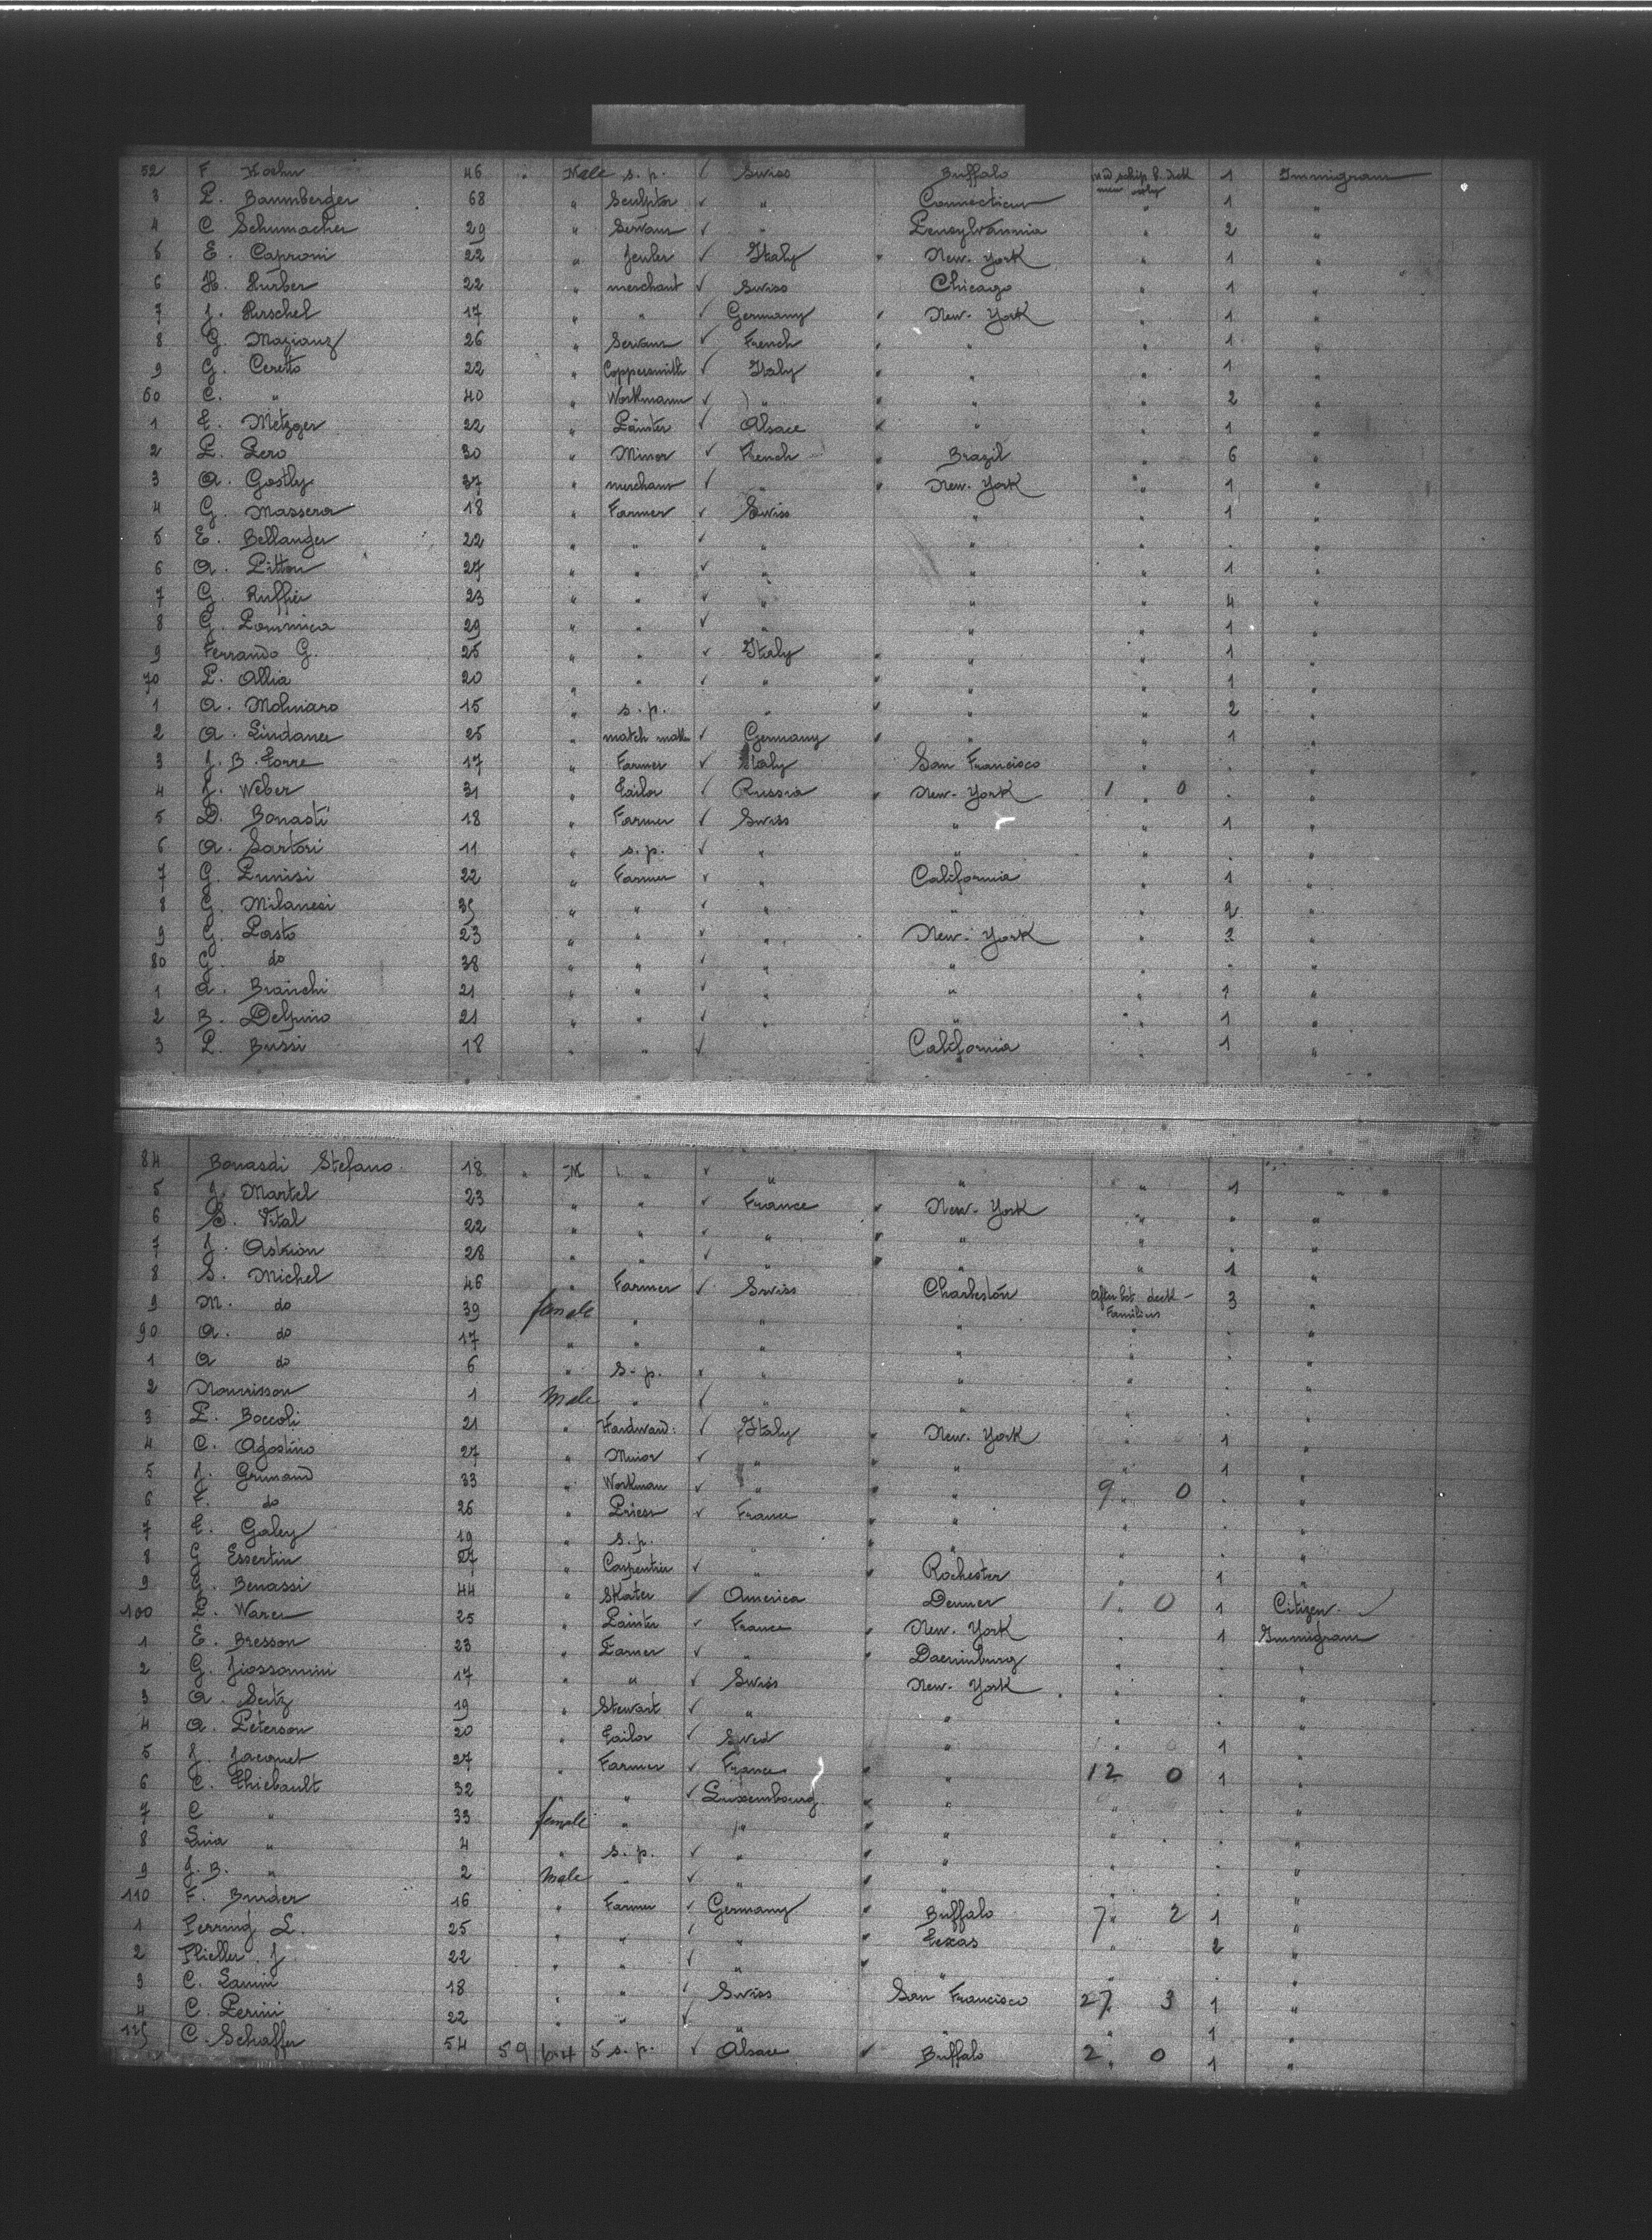 52 F Koehn 46 " Male s. p. ✓ Swiss Buffalo mid schip b. deck men only 1 Immigrant
3 P. Baumberger 68 " Sculptor ✓ " Connecticut " 1 "
4 C Schumacher 29 " Servant ✓ " Pensylvannia " 2 "
5 E. Caproni 22 " ✓ Italy " New-York " 1 "
6 H. Hurber 22 " merchant ✓ Swiss Chicago " 1 "
7 J. Hirschel 17 " " ✓ Germany " New-York " 1 "
8 G. Mazianz 26 " Servant ✓ French " " " 1 "
9 G. Ceretto 22 " Coppersmith ✓ Italy " " " 1 "
60 C. " 40 " Workmann ✓ " " " " 2 "
1 E. Metzger 22 " Painter ✓ Alsace " " " 1 "
2 P. Pero 30 " Minor ✓ French " Brazil " 6 "
3 A. Gostly 37 " merchant ✓ " " New-York " 1 "
4 G. Massera 18 " Farmer ✓ Swiss " " 1 "
5 E. Bellanger 22 " " ✓ " " " . "
6 A. Pitton 27 " " ✓ " " " 1 "
7 G. Ruffier 23 " " ✓ " " " 4 "
8 G. Pommica 29 " " ✓ " " " 1
9 Ferrando G. 25 " " ✓ Italy " " " 1 "
70 P. Allia 20 " " ✓ " " " " 1 "
1 A. Molinaro 15 " s. p. " " " " 2 "
2 A. Lindauer 25 " match mak. ✓ Germany " " " 1 "
3 J. B. Torre 17 " Farmer ✓ Italy San Francisco " . "
4 J. Weber 31 " Tailor ✓ Russia " New-York 1 " 0 . "
5 D. Bonasti 18 " Farmer ✓ Swiss " " 1 "
6 A. Sartori 11 " s. p. ✓ " " " . "
7 G. Punisi 22 " Farmer ✓ " California " 1 "
8 G. Milanesi 35 " " ✓ " " " 2 "
9 G. Pasto 23 " " ✓ " New-York " 2 "
80 G. do 38 " " ✓ " " " . "
1 A. Bianchi 21 " " ✓ " " " 1 "
2 B. Delpino 21 " " ✓ " " " 1 "
3 P. Bussi 18 " " ✓ California " 1 "
84 Bonasdi Stefano 18 " M " ✓ " " " 1 "
5 J. Martel 23 " " ✓ France " New-York " . "
6 B. Vital 22 " " ✓ " " " " . "
7 J. Askion 28 " " ✓ " " " " 1 "
8 S. Michel 46 " Farmer ✓ Swiss Charleston After bot deck - Families 3 "
9 M. do 39 female " " " " . "
90 A. do 17 " " " " " . "
1 A do 6 " s. p. ✓ " " " . "
2 Nourisson 1 Male " ✓ " " . "
3 P. Boccoli 21 " Hardward: ✓ Italy " New-York " 1 "
4 C. Agostino 27 " Minor ✓ " " " " 1 "
5 J. Grimand 33 " Workman ✓ " " " 9 " 0 . "
6 F. do 26 " Priest ✓ France " " " . "
7 E. Galey 19 " s. p. " " " " . "
8 G Essertin 27 " Carpentrier ✓ " " Rochester " 1 "
9 G. Benassi 44 " Skater ✓ America Denver 1 " 0 1 Citizen. ✓
100 P. Warer 25 " Painter ✓ France " New-York " 1 Immigrant
1 E. Bresson 23 " Farmer ✓ " " " . "
2 G. 17 " " ✓ Swiss New-York " . "
3 A. Seitz 19 " Stewart ✓ " " . "
4 A. Peterson 20 " Tailor ✓ Swed " " 1 "
5 J. Jacquet 27 " Farmer ✓ France " " 12 0 1 "
6 C. Thiebault 32 " ✓ Luxembourg " " " . "
7 C " 33 female " " " " . "
8 " 4 " s. p. ✓ " " " . "
9 J. B. " 2 Male " ✓ " " " . "
110 F. Burder 16 " Farmer ✓ Germany " Buffalo 7 " 2 1 "
1 Perring L. 25 " " ✓ " " Texas " 2 "
2 Flieller J. 22 " " ✓ " " " . "
3 C. Lanini 18 " " ✓ Swiss San Francisco 27 3 1 "
4 C. Perini 22 " " ✓ " " " 1 "
115 C. Schaffer 54 59 64 5 s. p. ✓ Alsace ✓ Buffalo 2 " 0 1 "